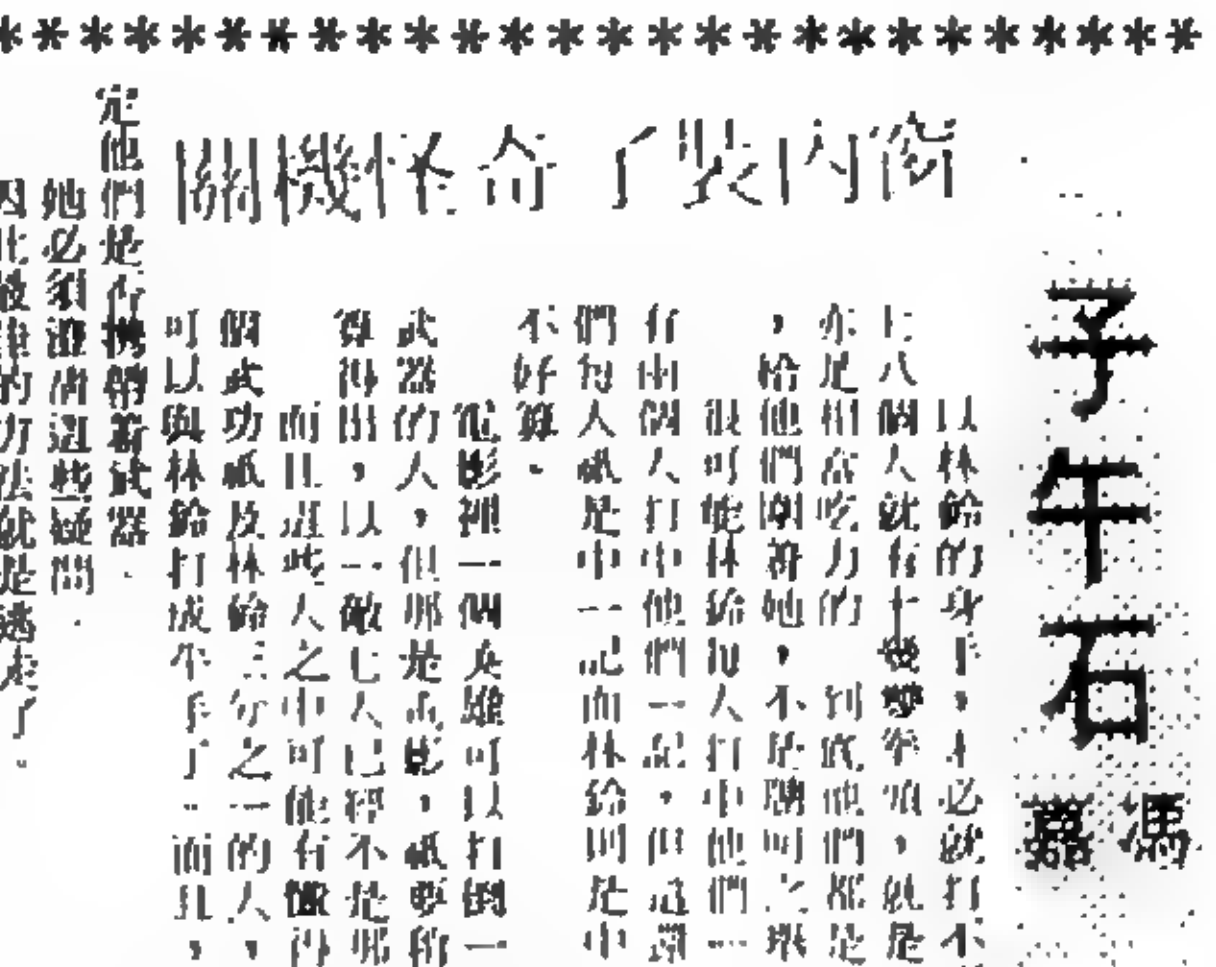 子午石
馮嘉
窗內裝了奇怪機關
以林鈴的身手，未必就打不
七八個人就有十幾雙拳頭，就是
亦是相當吃力的　到底他們都是
，給他們圍着她，不是
很可能林鈴每人打中他們一
有由個人打中他們一記，但這還
們每人祇是中一記而林鈴則是中
不好算。
電影裡一個英雄可以打倒一
武器的人，但那是電影，祇要稍
算得出，以一敵七人已經不是那
而且這些人之中可能有
個武功祇及林鈴三分之一的人，
可以與林鈴打成平手了，而且，
定他們是否携帶着武器．
她必須澄清這些疑問．
的方法就是逃走了。